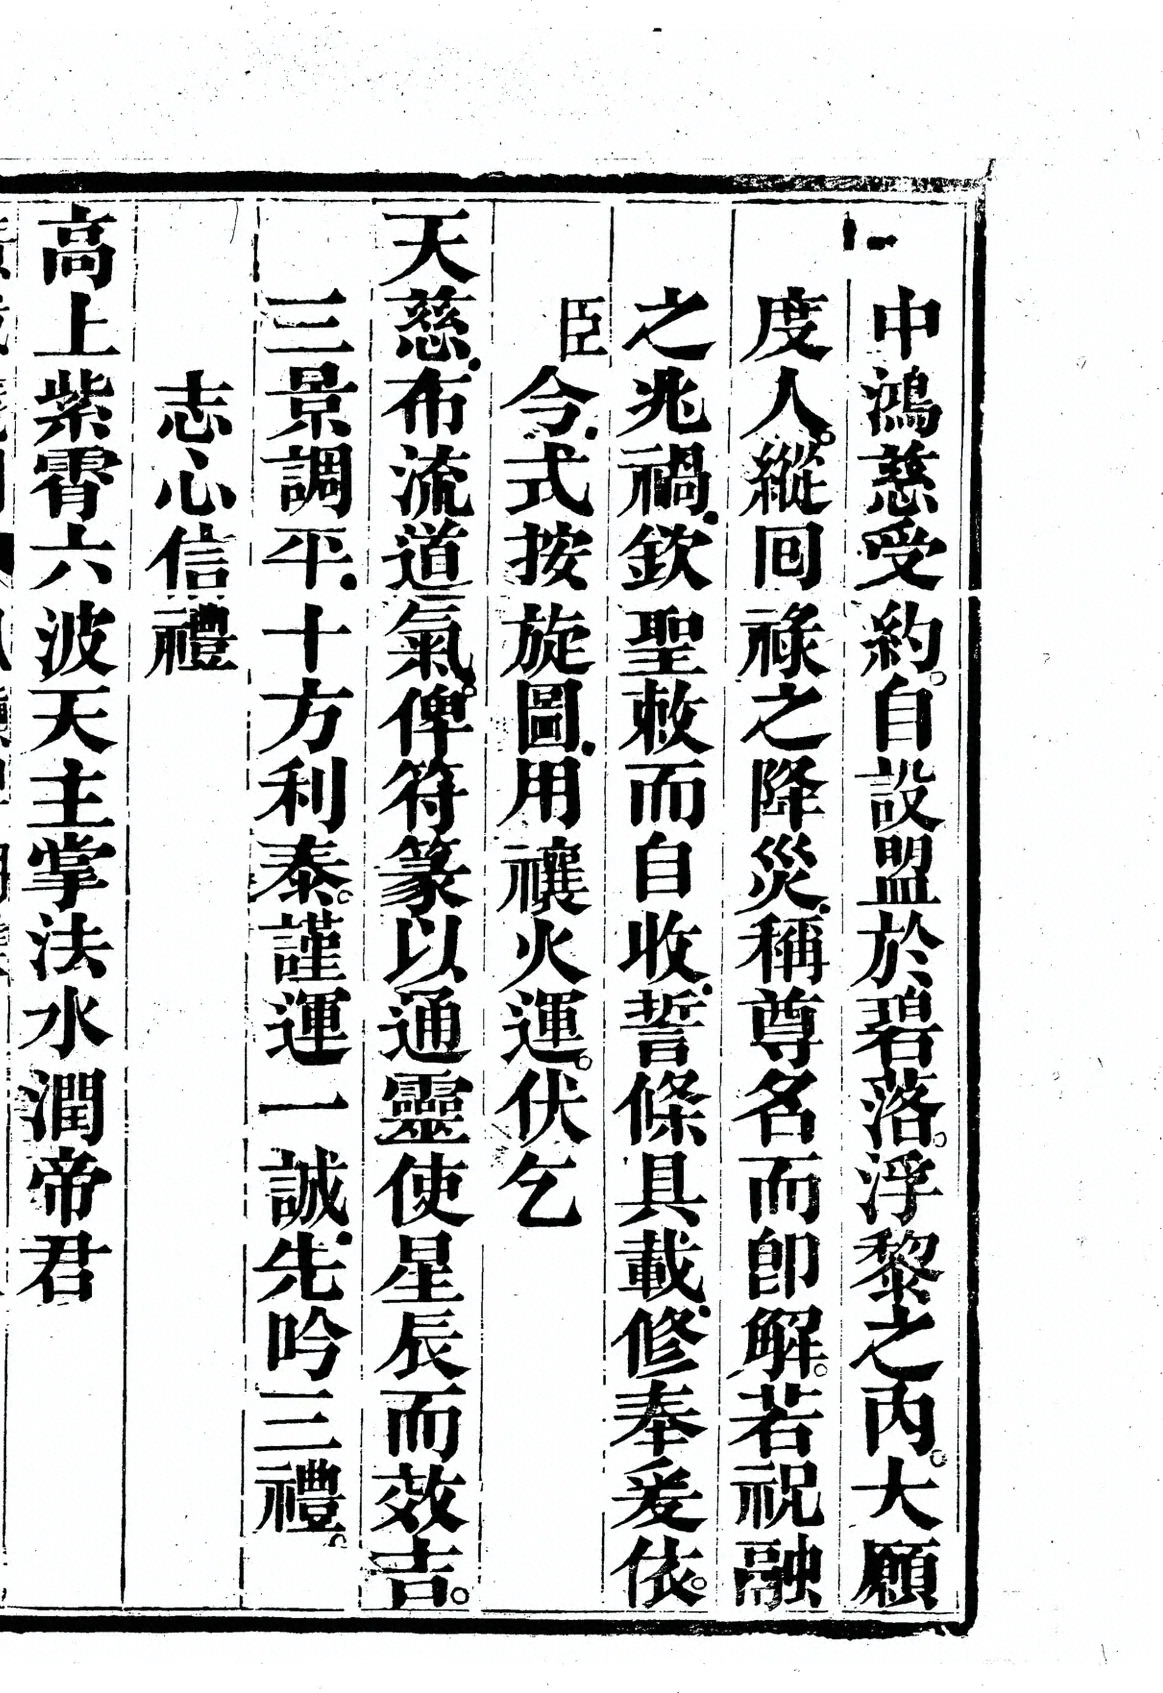 中鴻慈受約。自設盟於碧落。浮黎之內。大願
度人。縱回祿之降災.稱尊名而卽解。若祝融
之兆禍.欽聖敕而自收.誓條具載.修奉爰依。
臣今.式按旋圖.用禳火運。伏乞
天慈.布流道氣。俾符篆以通靈使星辰而效吉。
三景調平.十方利泰。謹運一誠.先吟三禮。
志心信禮
高上紫霄六波天主掌法水潤帝君